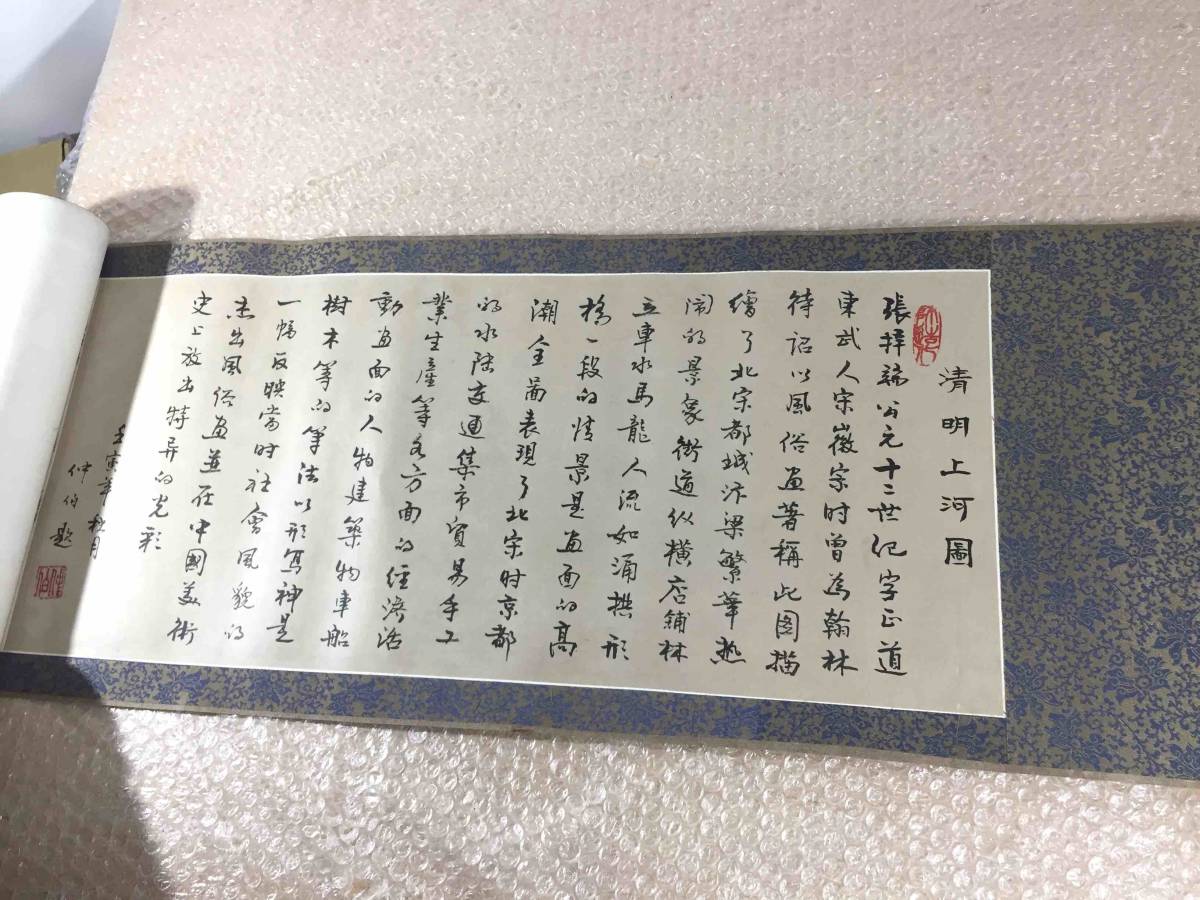 清明上河圖
張擇端公元十二世纪字正道
東武人宋徽宗时曾為翰林
待诏以風俗画著稱此图描
繪了北宋都城汴梁繁華热
闹的景象街道纵横店铺林
立車水馬龍人流如涌拱形
橋一段的情景是画面的高
潮全圖表現了北宋时京都
的水陆交通集市贸易手工
業生産等各方面的经济活
動画面的人物建築物車船
樹木等的筆法以形写神是
一幅反映当时社會風貌的
杰出風俗画並在中國美術
史上放出特异的光彩
壬寅年秋月
仲伯題